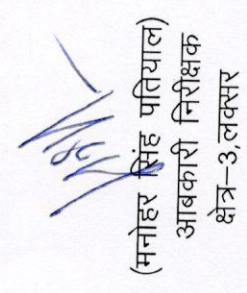 (मनोहर सिंह पतियाल)
आबकारी निरीक्षक
क्षेत्र–3,लक्सर